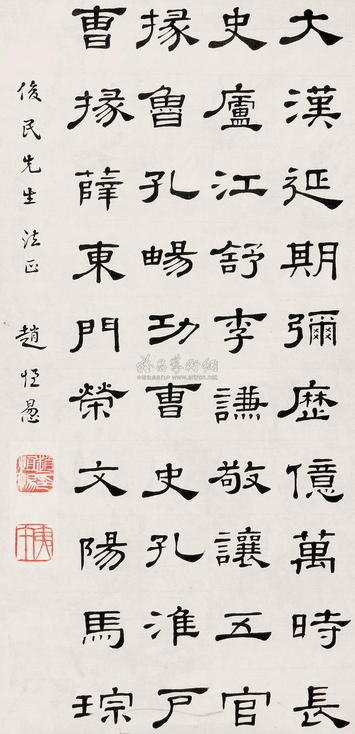 大漢延期彌歷億萬時長
史廬江舒李謙敬讓五官
掾魯孔暢功曹史孔淮戶
曹掾薛東門榮文陽馬琮
俊民先生法正
趙恒惖
雅昌藝術網